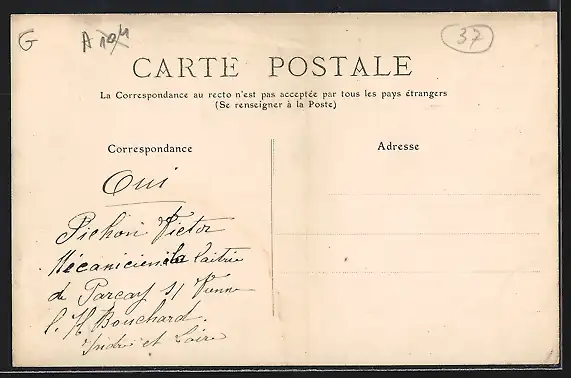 G
A 104
37
CARTE POSTALE
La Correspondance au recto n'est pas acceptée par tous les pays étrangers
(Se renseigner à la Poste)
Correspondance
Adresse
Oui
Pichon Victor
Mécanicien à la laitrie
de Parcay S/ Vienne
l. H Bouchard.
Indre et Loire